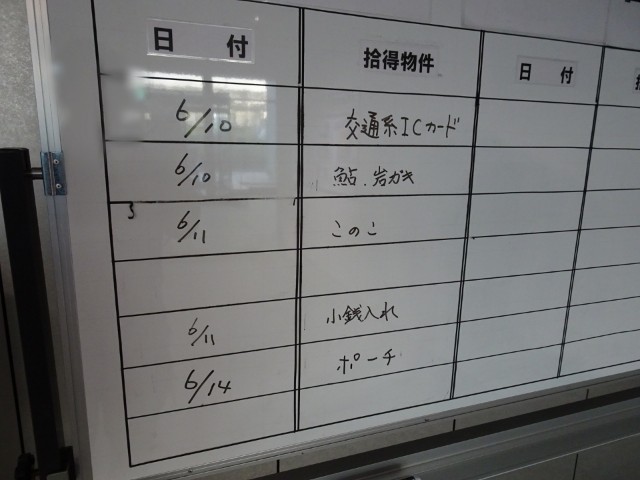 日 付 拾得物件 日 付
6/10 交通系ICカード
6/10 鮎.岩ガキ
6/11 このこ
6/11 小銭入れ
6/14 ポーチ